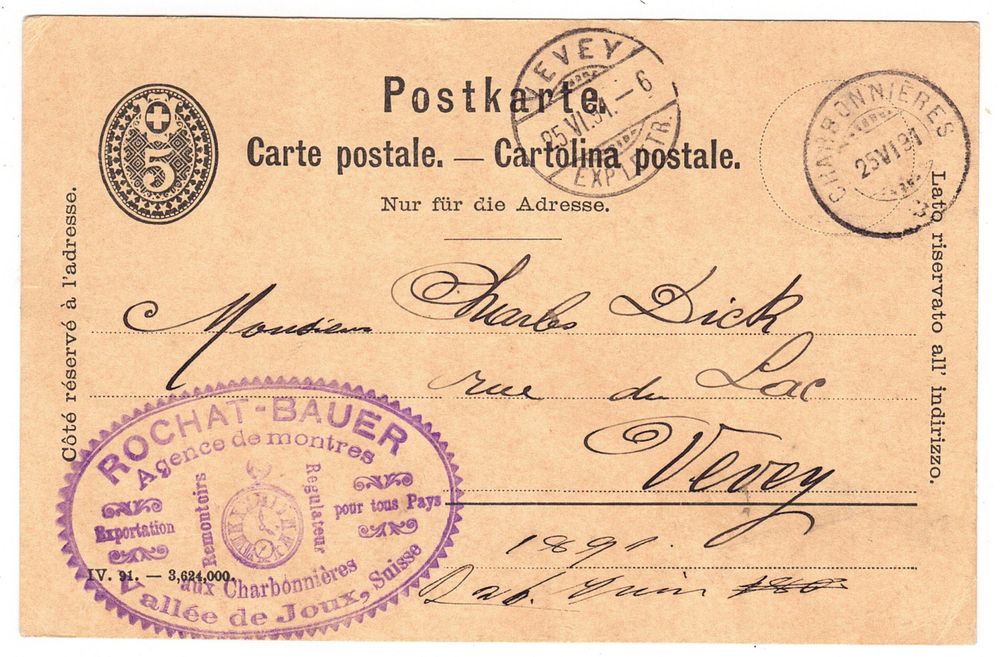 5
Postkarte.
Carte postale. — Cartolina postale.
Nur für die Adresse.
VEVEY
25 VI.91.—6
EXP. LETTR.
CHARBONNIÈRES
25 VI 91
Côté réservé à l'adresse.
Lato riservato all' indirizzo.
Monsieur Charles Dick
rue du Lac
Vevey
1891.
Juin
ROCHAT-BAUER
Agence de montres
Exportation
Remontoirs
Regulateur
pour tous Pays
aux Charbonnières
Vallée de Joux, Suisse
IV. 91. — 3,624,000.